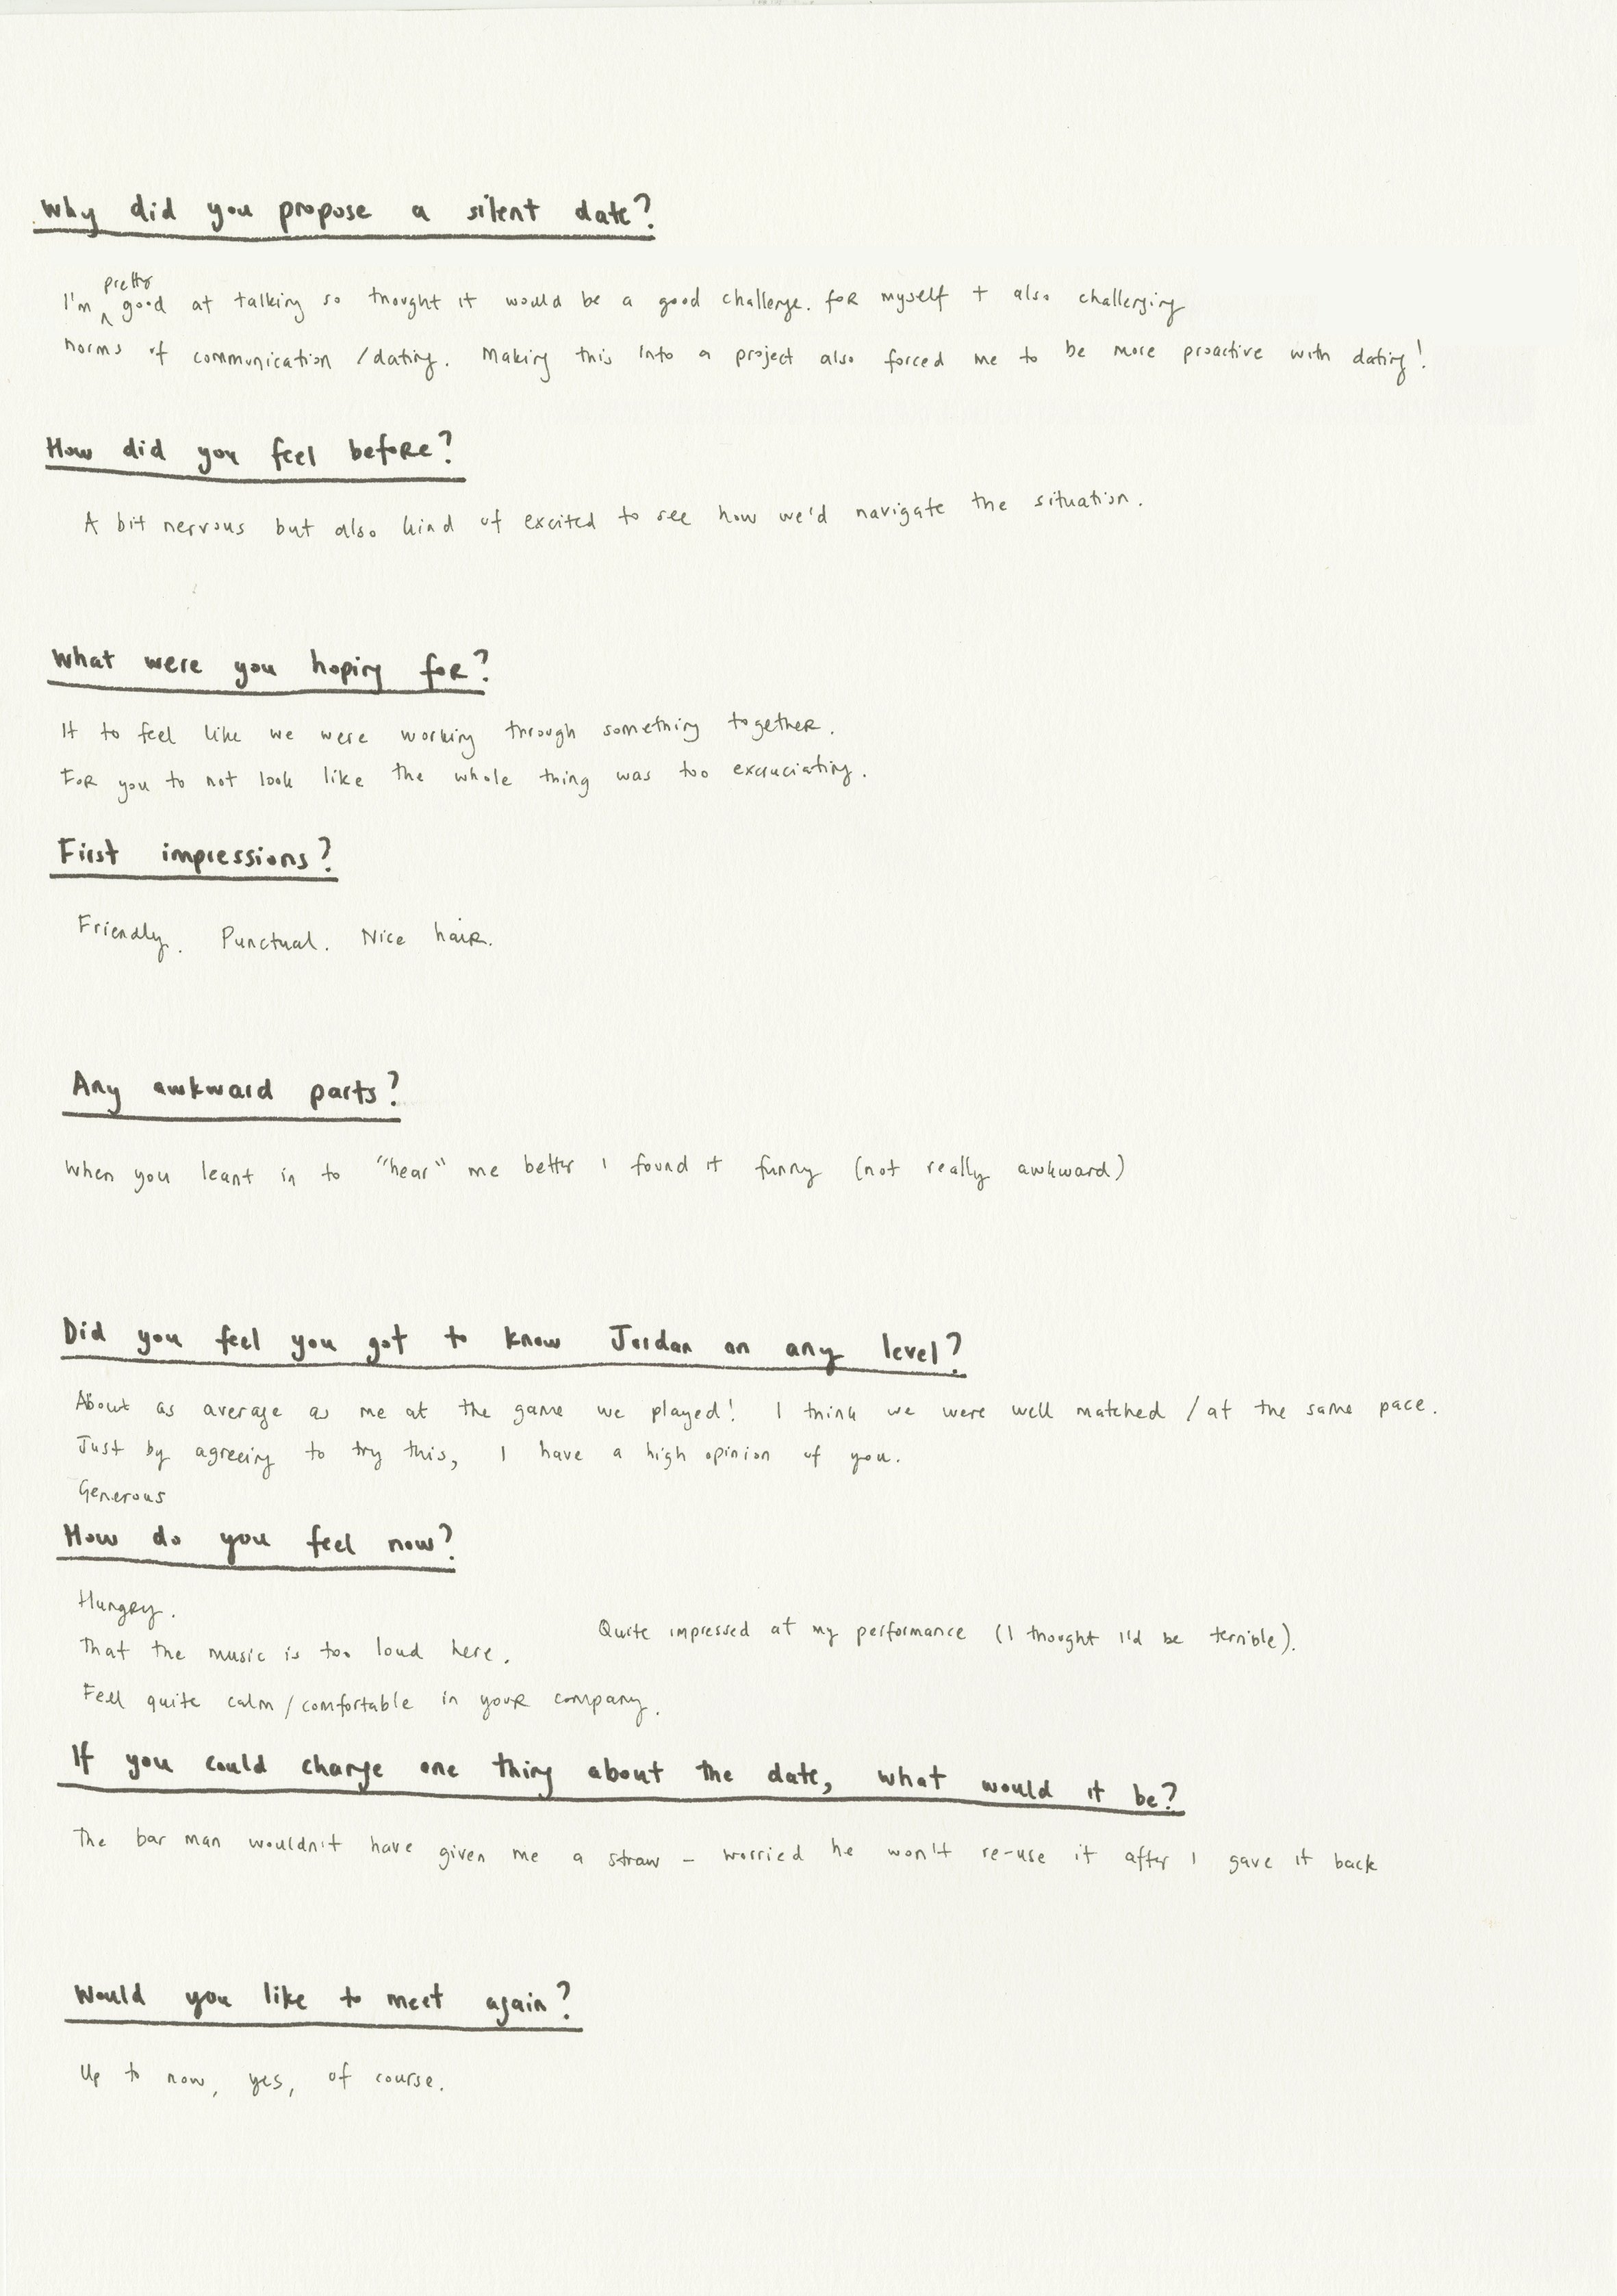 Why did you propose a silent date?
I'm pretty good at talking so thought it would be a good challenge. for myself + also challenging
norms of communication / dating. Making this into a project also forced me to be more proactive with dating!
How did you feel before?
A bit nervous but also kind of excited to see how we'd navigate the situation.
What were you hoping for?
It to feel like we were working through something together.
For you to not look like the whole thing was too excruciating.
First impressions?
Friendly. Punctual. Nice hair.
Any awkward parts?
When you leant in to "hear" me better I found it funny (not really awkward)
Did you feel you got to know Jordan on any level?
About as average as me at the game we played! I think we were well matched / at the same pace.
Just by agreeing to try this, I have a high opinion of you.
Generous
How do you feel now?
Hungry.
Quite impressed at my performance (I thought I'd be terrible).
That the music is too loud here.
Feel quite calm / comfortable in your company.
If you could change one thing about the date, what would it be?
The bar man wouldn't have given me a straw - worried he won't re-use it after I gave it back
Would you like to meet again?
Up to now, yes, of course.